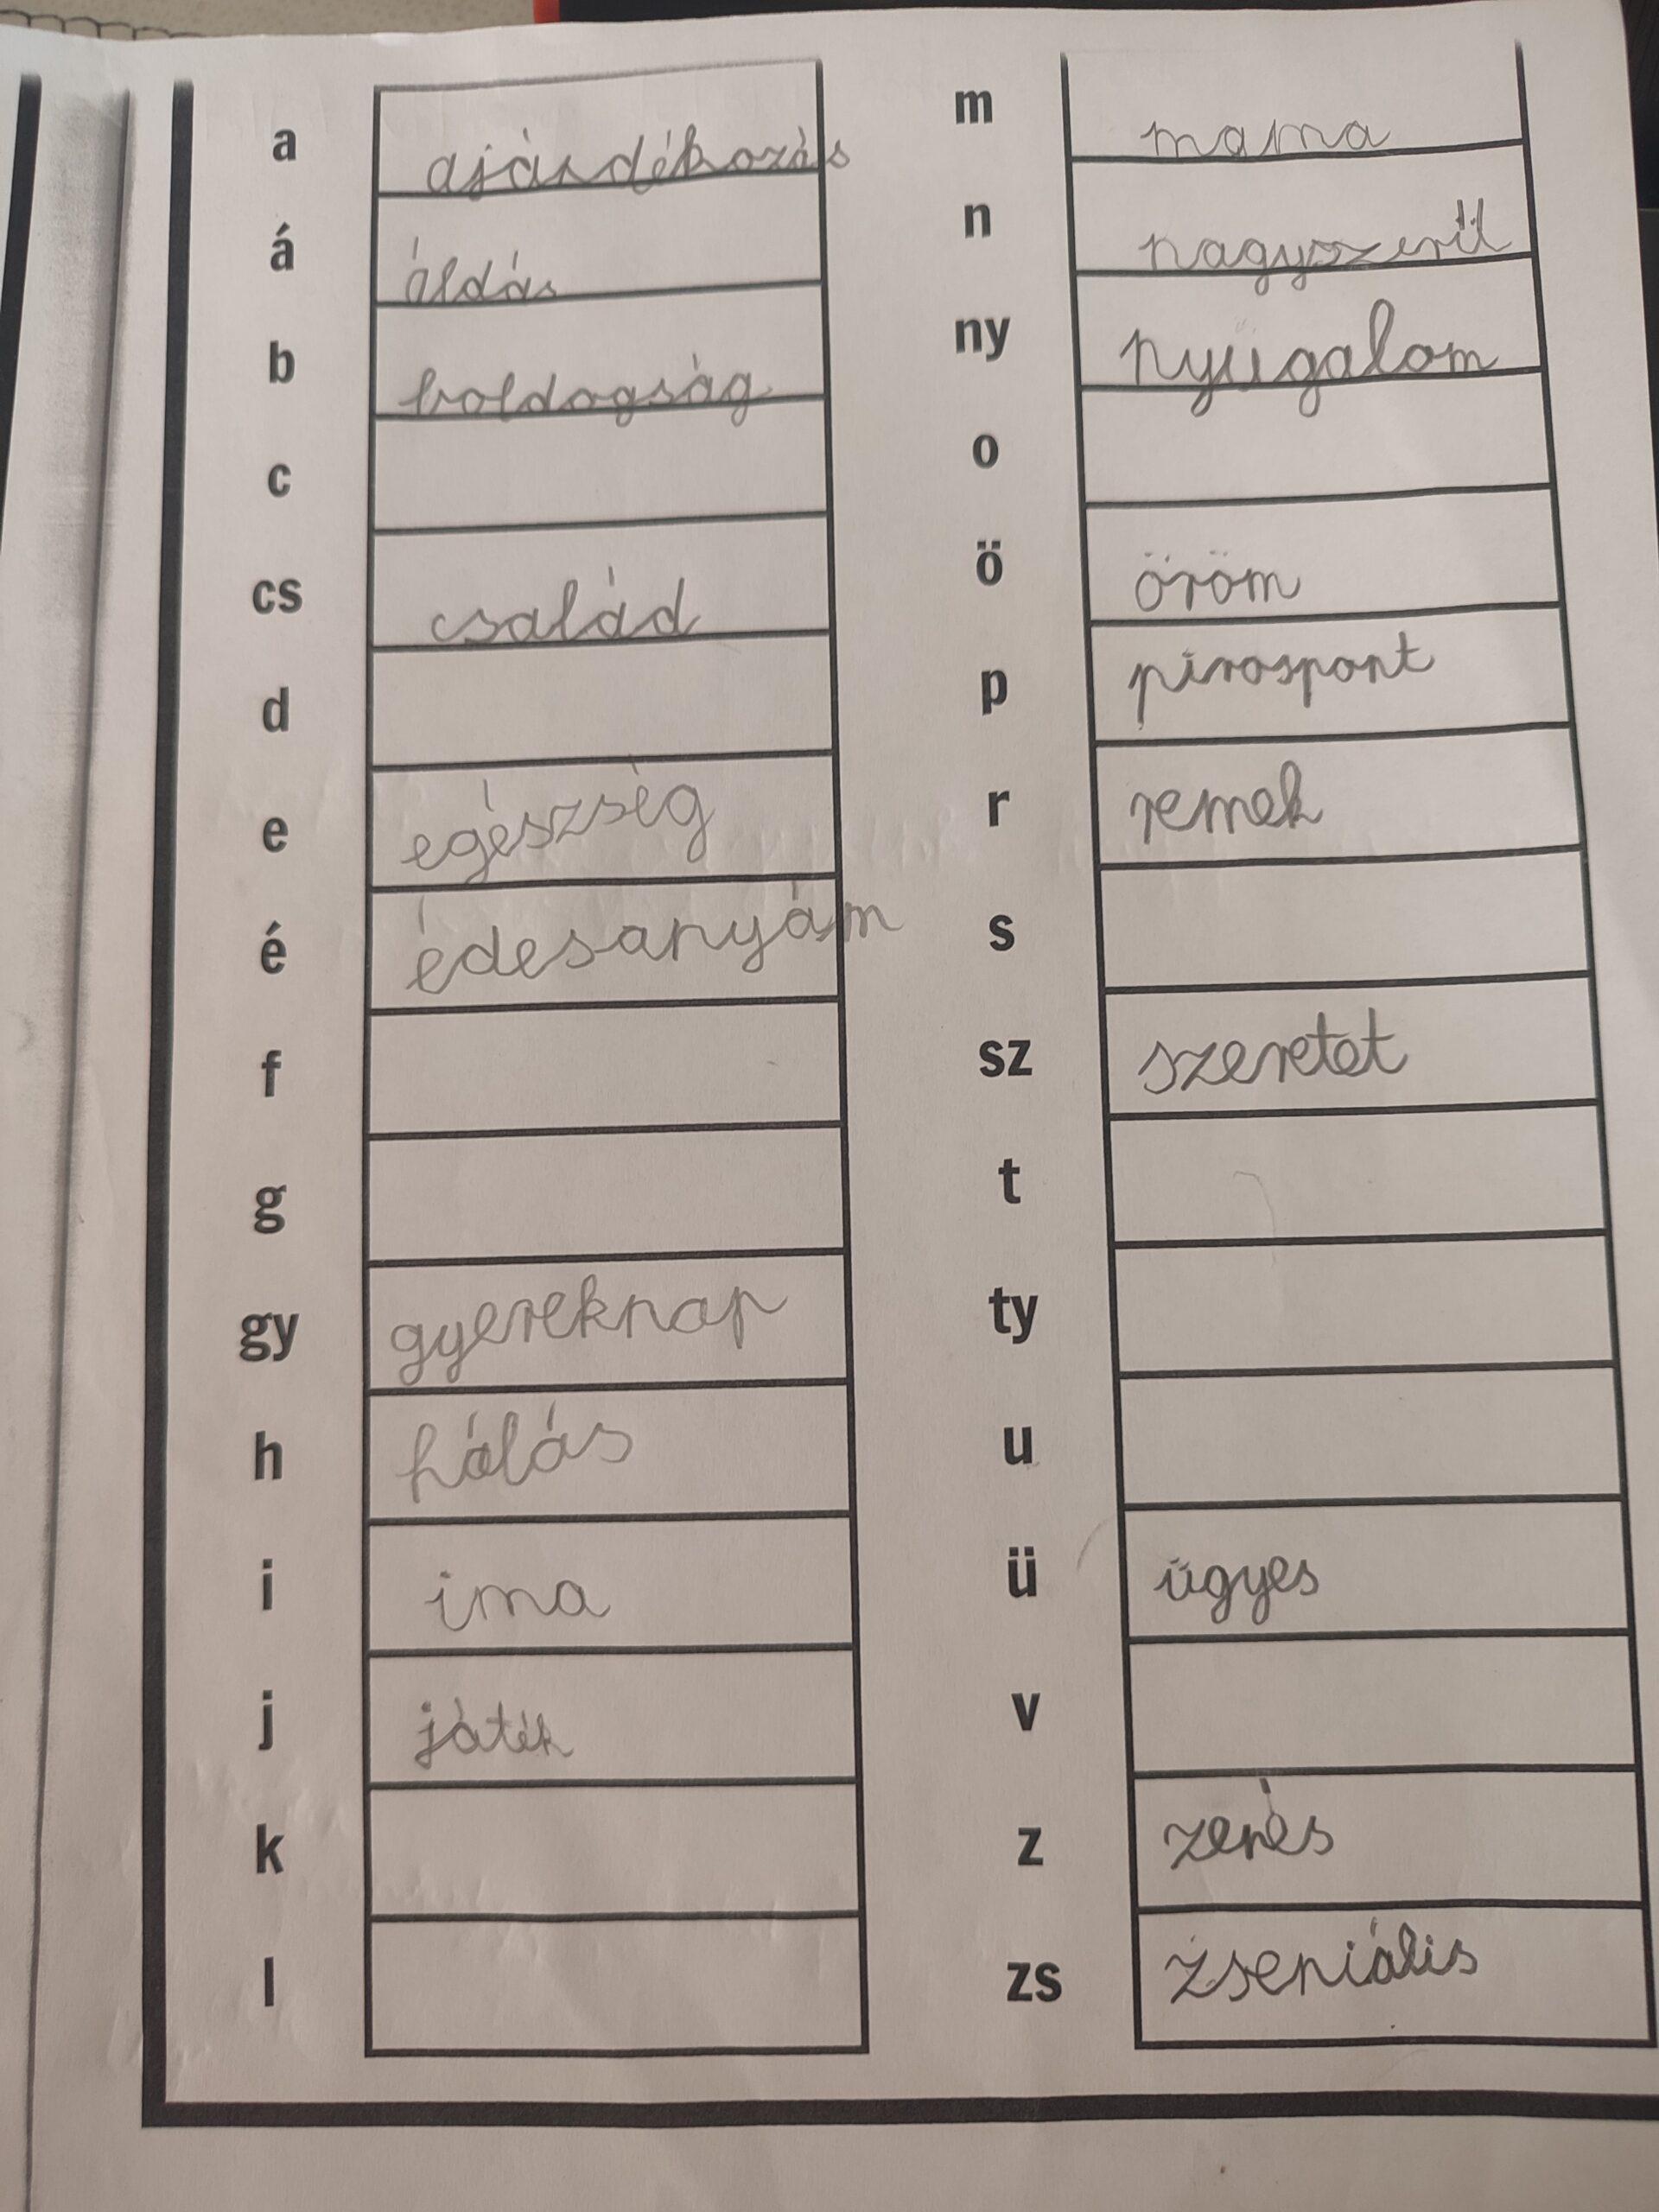 a ajándékozás
á áldás
b boldogság
c
cs család
d
e egészség
é édesanyám
f
g
gy gyereknap
h hálás
i ima
j játék
k
l
m mama
n nagyszerű
ny nyugalom
o
ö öröm
p pirospont
r remek
s
sz szeretet
t
ty
u
ü ügyes
v
z zenés
zs zseniális